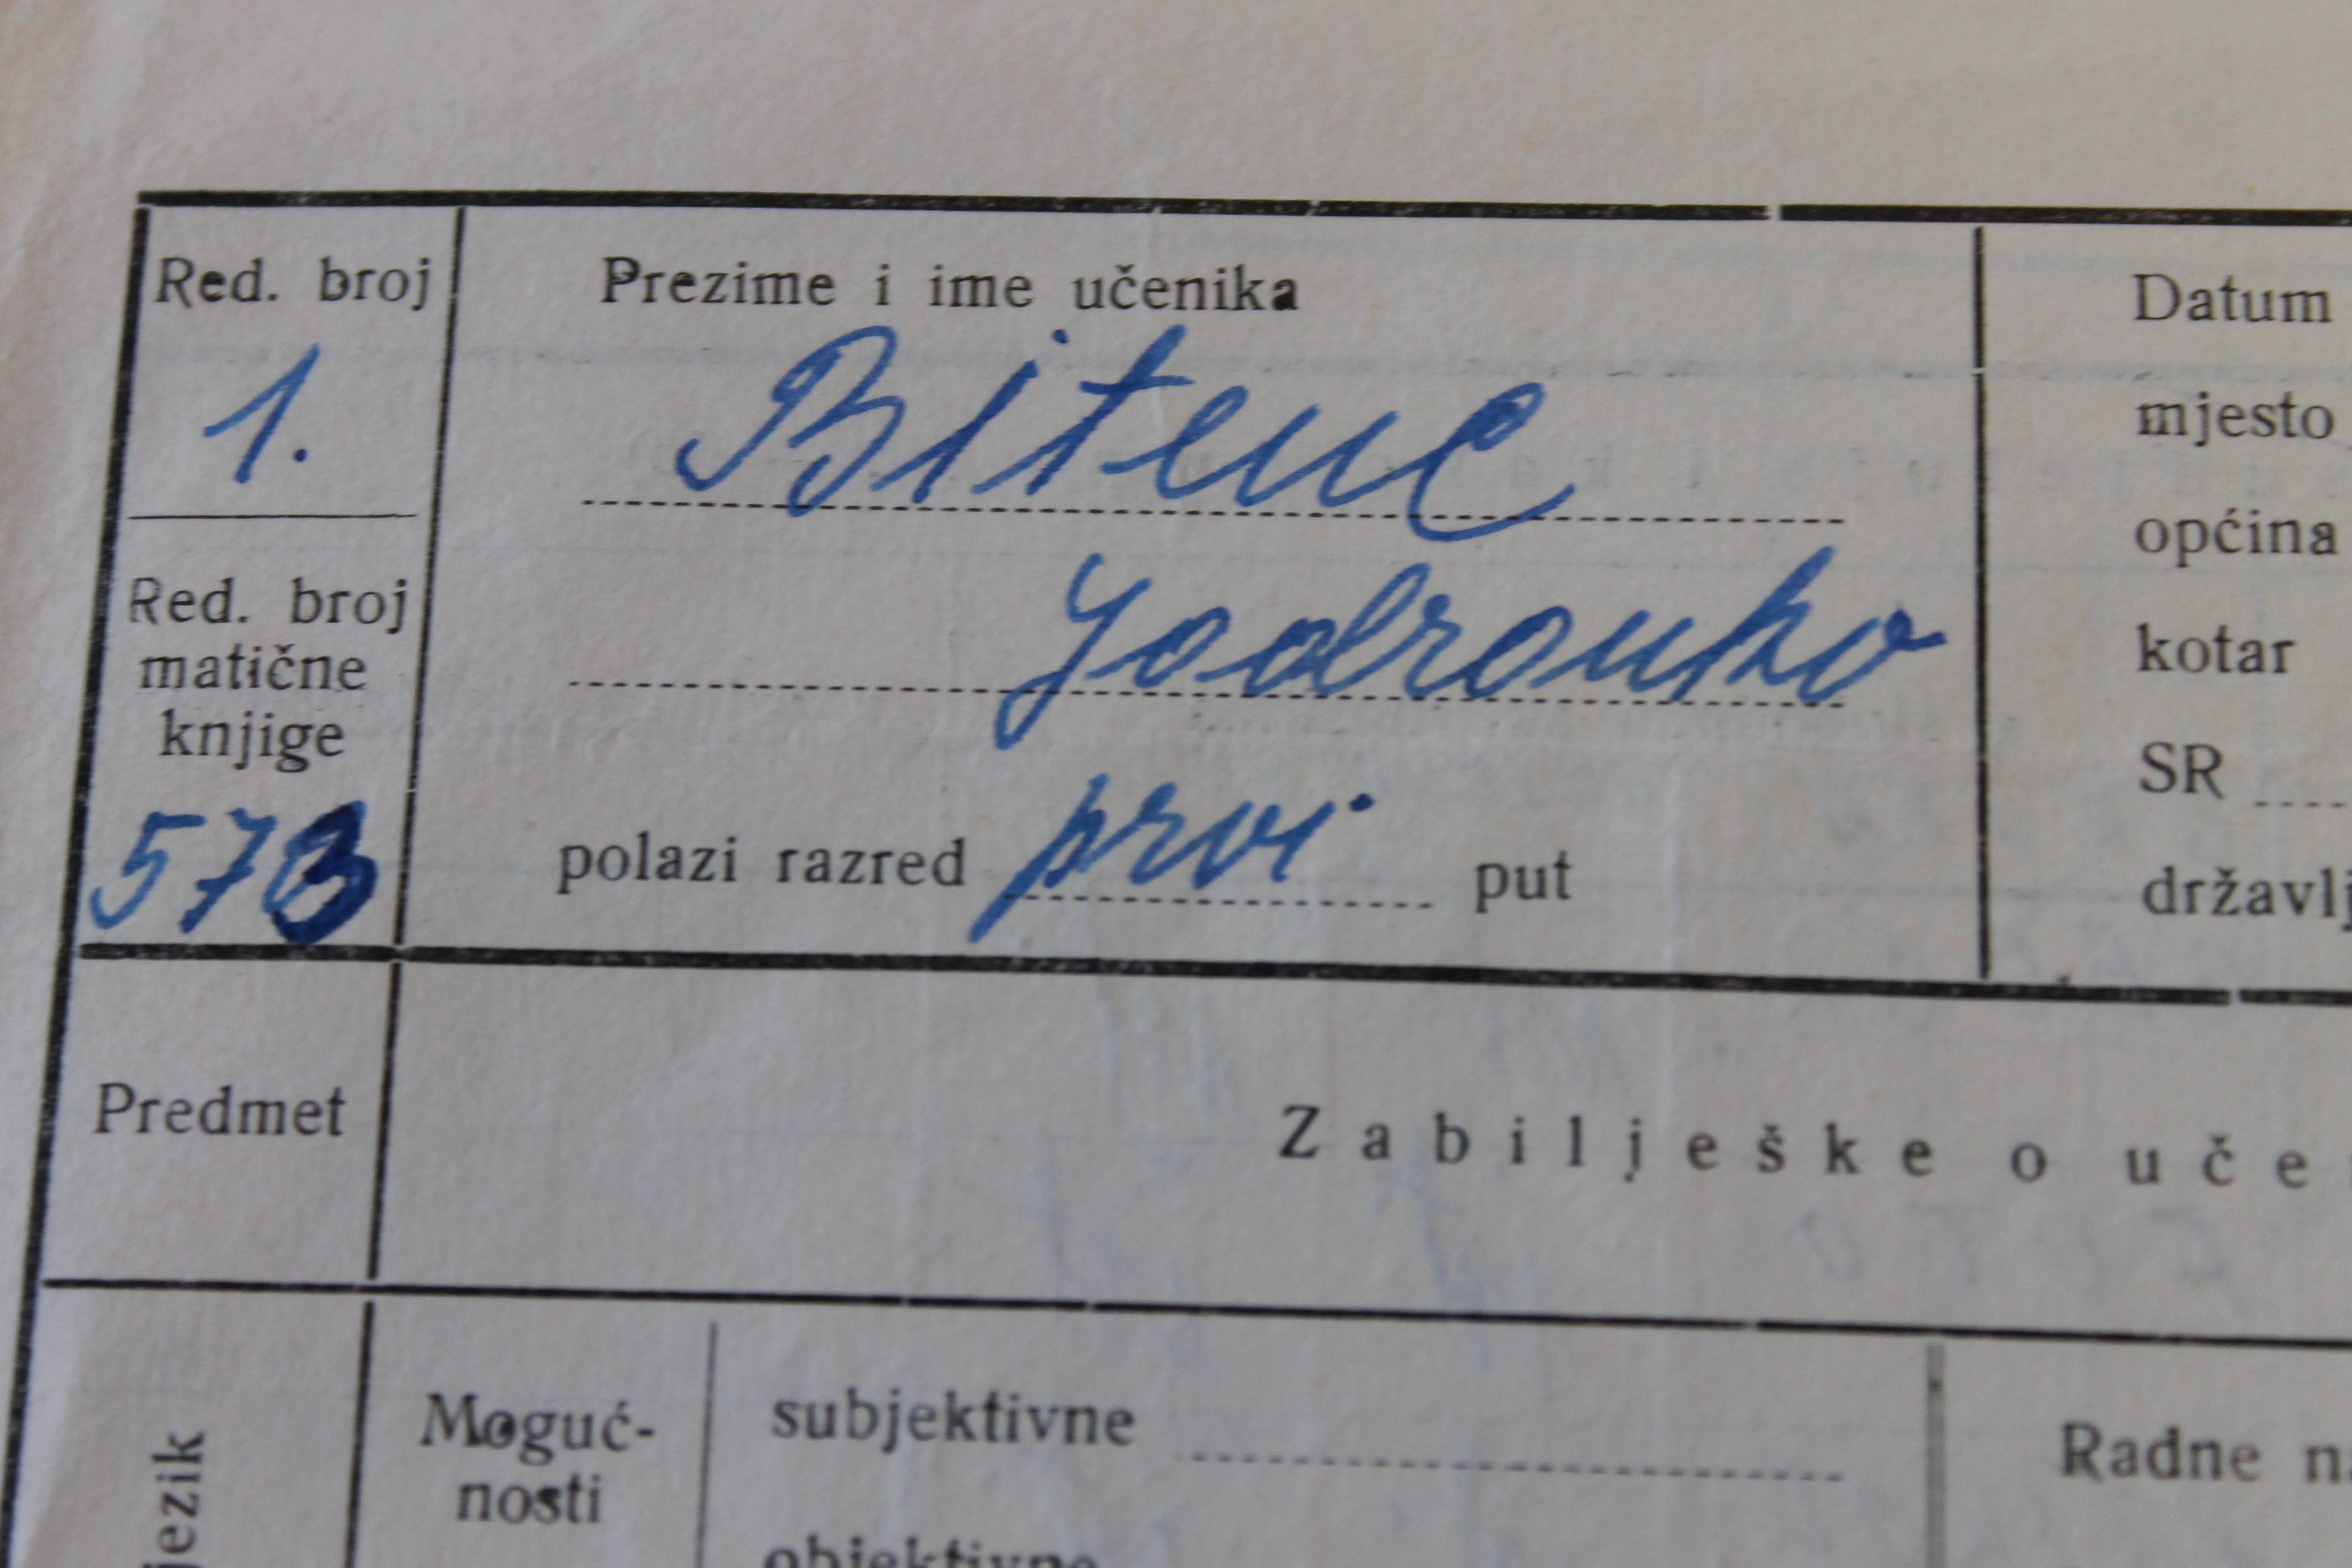 Red. broj
1.
Red. broj
matične
knjige
573
Prezime i ime učenika
Bitenc
Jadranka
polazi razred prvi put
Datum
mjesto
općina
kotar
SR
državlj
Predmet
Zabilješke o uče
jezik
Moguć-
nosti
subjektivne
objektivne
Radne n